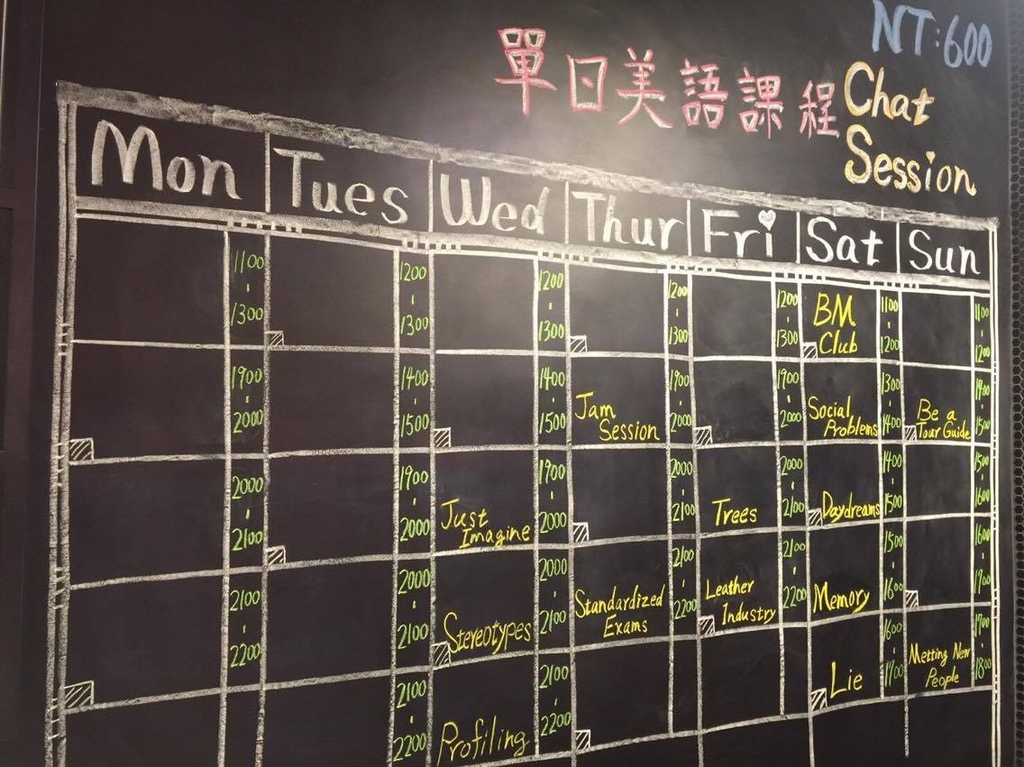 NT:600
單日美語課程 Chat
Session
Mon Tues Wed Thur Fri Sat Sun
1100
-
1300
1900
-
2000
2000
-
2100
2100
-
2200
1200
-
1300
1400
-
1500
1900
-
2000
2000
-
2100
2100
-
2200
1200
-
1300
1400
-
1500
Just
Imagine
1900
-
2000
Stereotypes
2000
-
2100
Profiling
2100
-
2200
1200
-
1300
Jam
Session
1900
-
2000
2000
-
2100
Standardized
Exams
2100
-
2200
1200
-
1300
1900
-
2000
Trees
2000
-
2100
Leather
Industry
2100
-
2200
BM
Club
1100
-
1200
Social
Problems
1300
-
1400
Daydreams
1400
-
1500
Memory
1500
-
1600
Lie
1600
-
1700
1100
-
1200
Be a
Tour Guide
1400
-
1500
1500
-
1600
1600
-
1700
Metting New
People
1700
-
1800